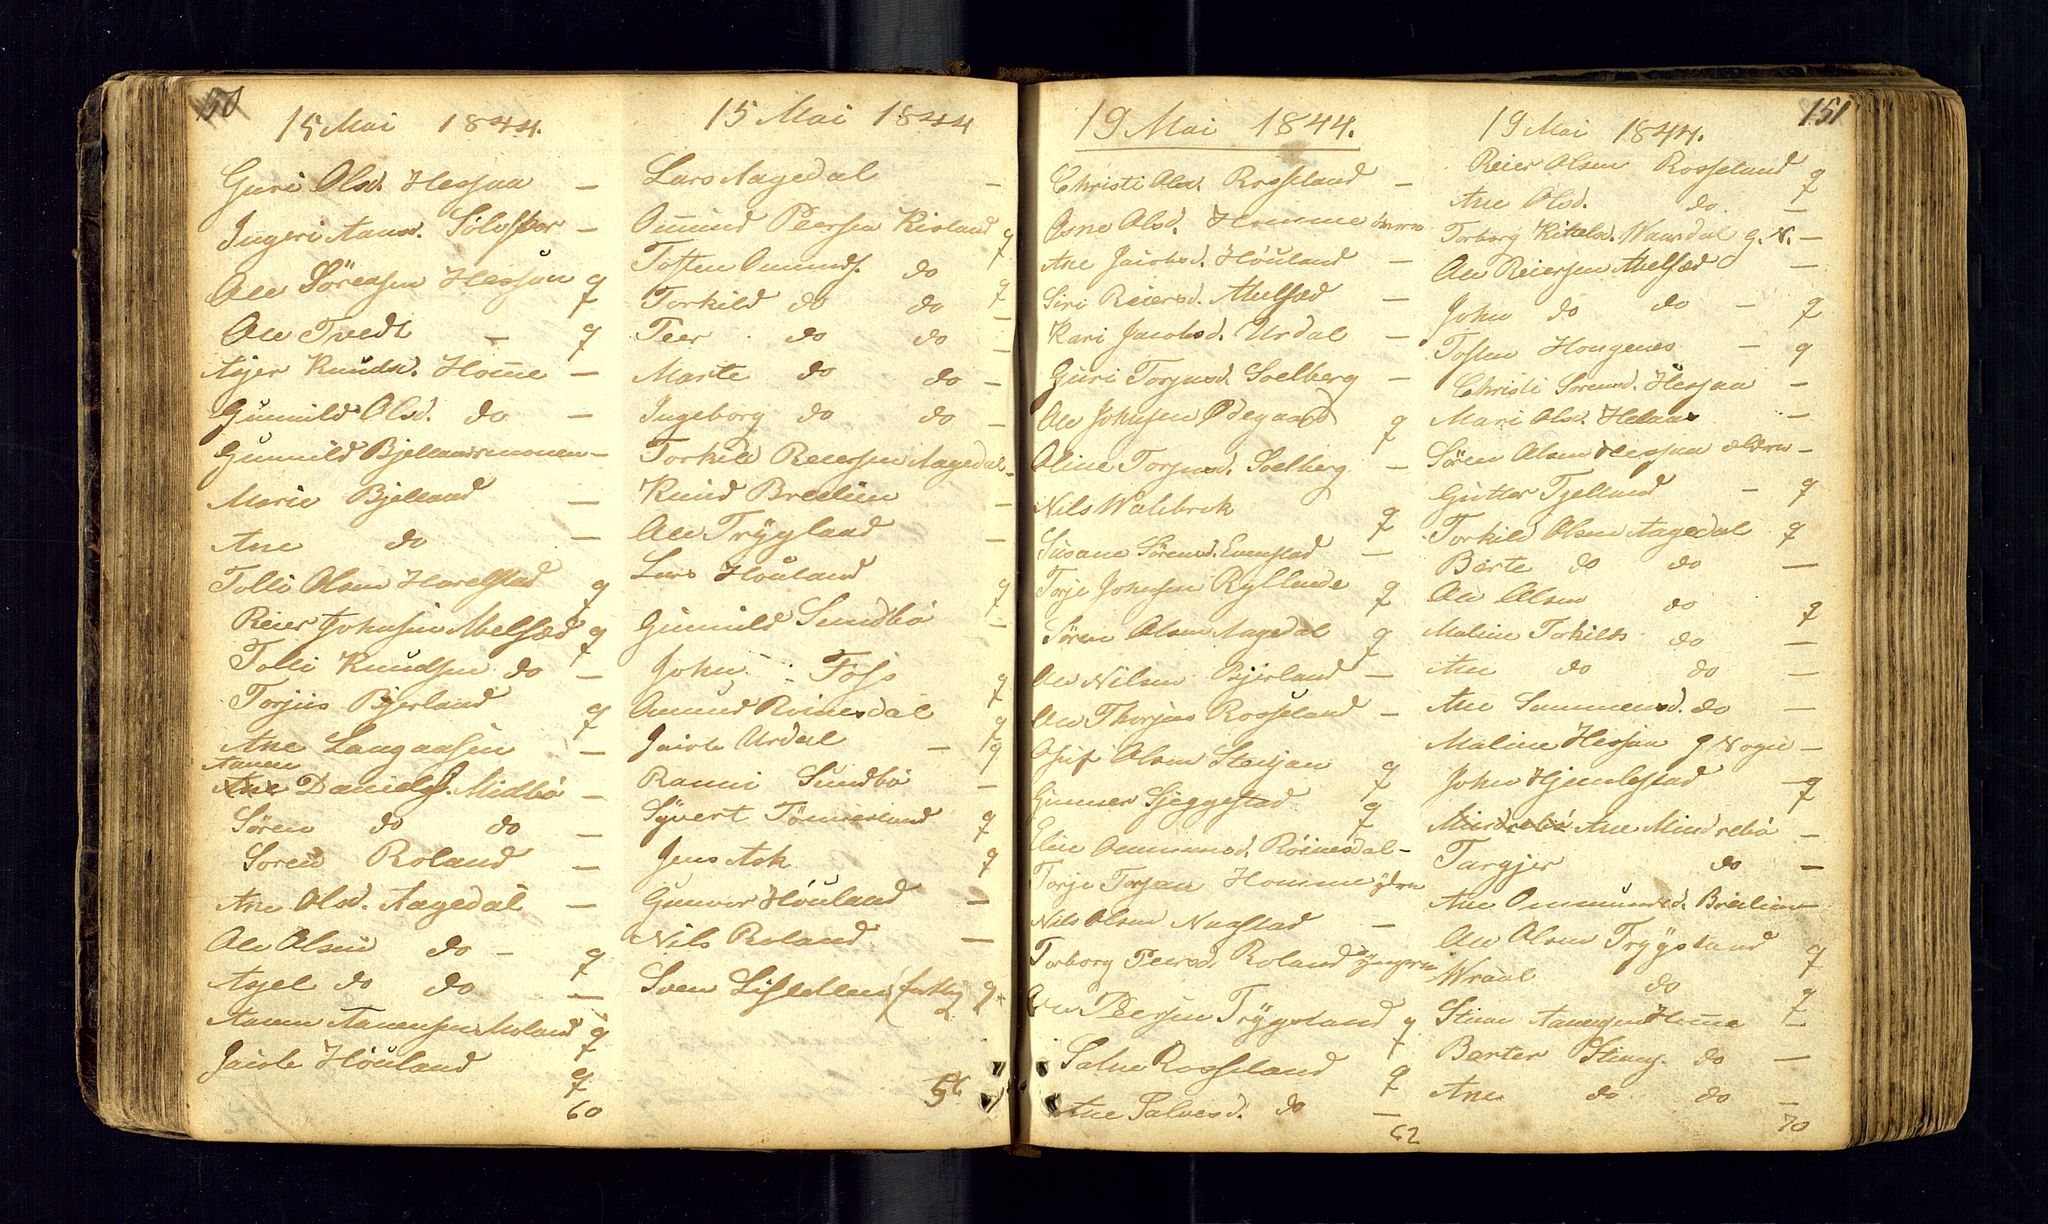 15 Mai 1844.
Guri Olsd. Hessaa —
Ingeri Aansd. Sølvspor —
Ole Sørensen Hessaa q
Ole Tvedt — q
Asjer Knudsd. Home —
Gunnild Olsd. do —
Gunnild Bjellandsmonen —
Marie Bjelland —
Ane do —
Tolli Olsen Harelstad q
Reier Johnsen Melsæd q
Tolli Knudsen do —
Torjus Bjerland q
Ane Langaasen —
Aanen
Daniels. Midbø —
Søren do do —
Soren Roland —
Ane Olsd. Aagedal —
Ole Olsen do — q
Asjel do do —
Aanen Aanensen Moland q
Jacob Høuland q
60
15 Mai 1844
Lars Aagedal —
Omund Peersen Risland q
Tosten Omunds. do q
Torkild do do —
Peer do do —
Marte do do —
Ingeborg do do —
Torkild Reiersen Aagedal —
Knud Breilien —
Ole Trygland —
Lars Høuland q
Gunnild Sundbø —
John Foss q
Omund Roinesdal q
Jacob Urdal — q
Ranni Sundbø —
Syvert Tønnesland q
Jens Ask q
Gunvor Høuland —
Nils Roland —
Sven q
56
19 Mai 1844.
Christi Olsd. Rosseland —
Asne Olsd. Homme
Ane Jacobsd. Høuland —
Siri Reiersd. Melsæd —
Kari Jacobsd. Urdal —
Guri Torjusd. Solberg —
Ole Johnsen Ødegaard q
Oline Torjusd. Solberg —
Nils Walebrok q
Susane Sørensd. Evenstad —
Torje Johnsen Ryllande q
Søren Olsen Aagedal q
Ole Nilsen Bjerland —
Ole Thorjus Rosseland —
Osuf Olsen q
Gunner Skeggestad q
Eline Ommundsd. Røinesdal —
Torje Torjsen Homme ydre
Nils Olsen —
Torborg Peersd. Roland yngre
Ole Peersen Trygsland q
Salve Rosseland q
Ane Salvesd. do —
62
151
19 Mai 1844.
Reier Olsen Rosseland q
Ane Olsd. do. —
Torborg Kitelsd. —
Ole Reiersen Melsæd —
John do do — q
Tosten Hougenes — q
Christi Sorensd. Hessaa —
Mari Olsd. —
Søren Olsen Hessaa ældre —
Gutter Tjelland — q
Torkild Olsen Aagedal q
Barte do do —
Ole Olsen do q
Maline Tokilds do —
Ane do do —
Ane do —
Maline Hessaa —
John Hjemlestad q
Ane Mindrebø —
Targjer do —
Ane Ommundsd. Breilien —
Ole Olsen Trygsland q
Wraal do q
Stinn Aanensen Home —
Barter do —
Ane do do —
70